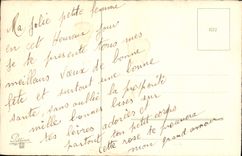 Ma jolie petite femme
en cet heureux jour
je te présente tous mes
meilleurs vœux de bonne
fête et surtout une bonne
santé, sans oublié la prospérité
mille bonnes bises sur
tes lèvres adorées et
partout ton petit corps
Cette rose te prouvera
mon grand amour